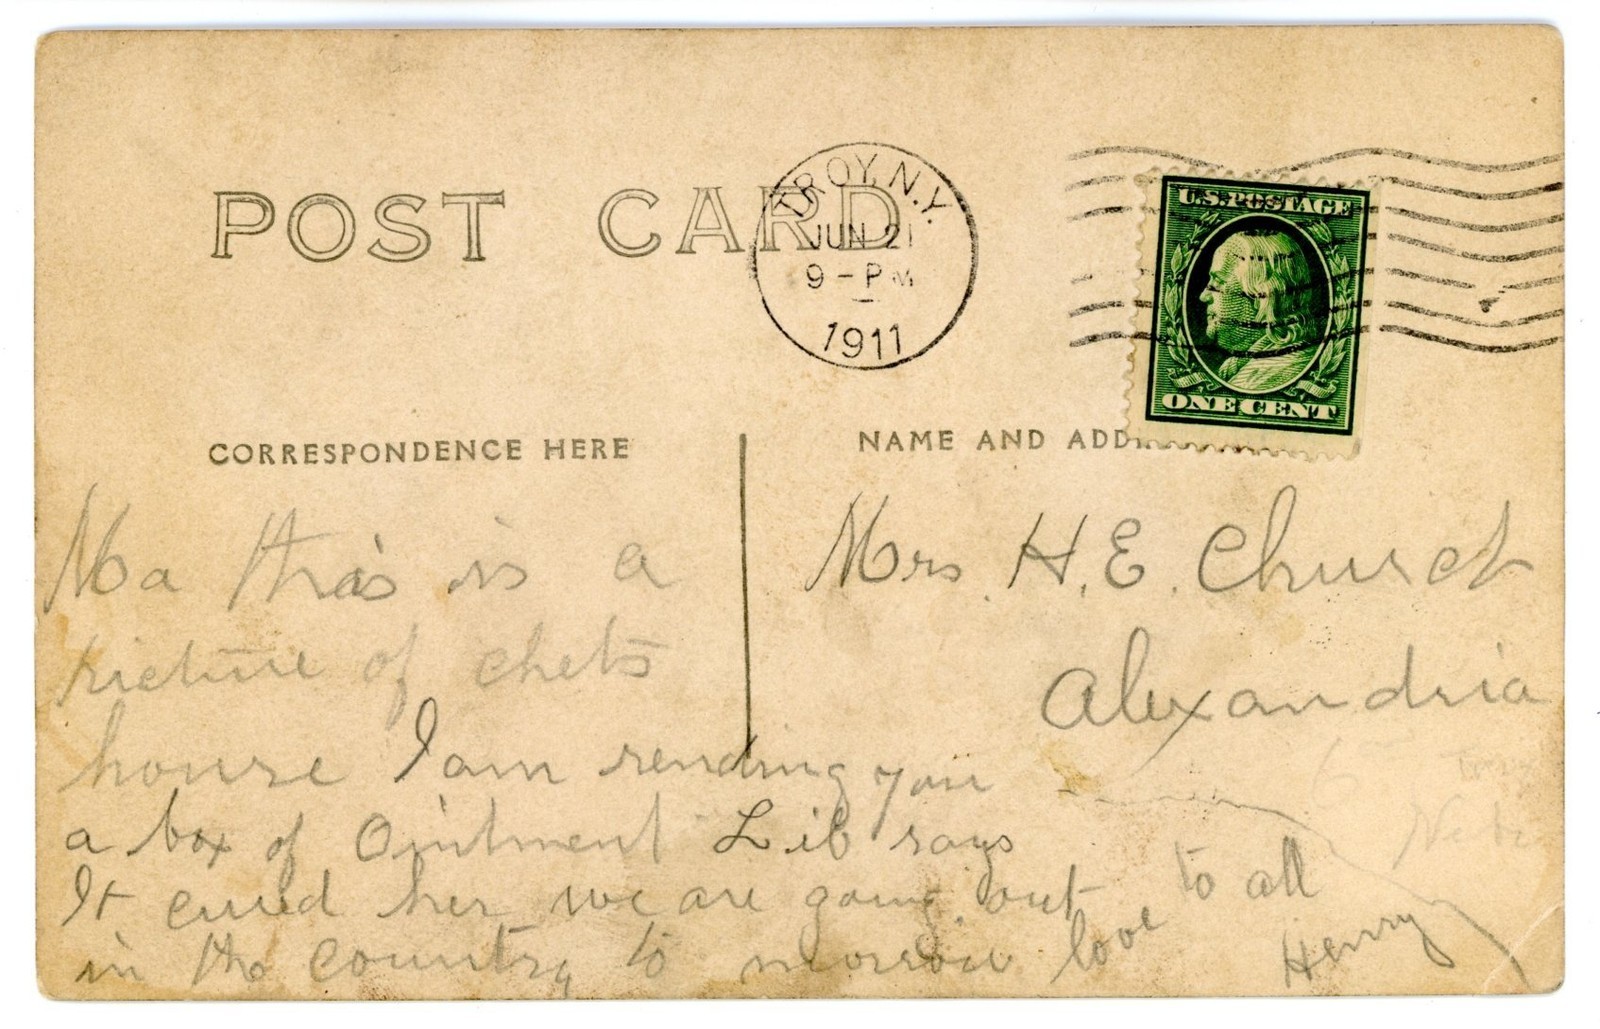 POST CARD
TROY, N.Y.
JUN 21
9 - PM
1911
U.S. POSTAGE
ONE CENT
CORRESPONDENCE HERE
NAME AND ADD
Ma this is a
picture of chets
house I am sending you
a box of Ointment Lib says
It cured her we are going out
in the country to morrow love to all
Henry
Mrs. H. E. Church
Alexandria